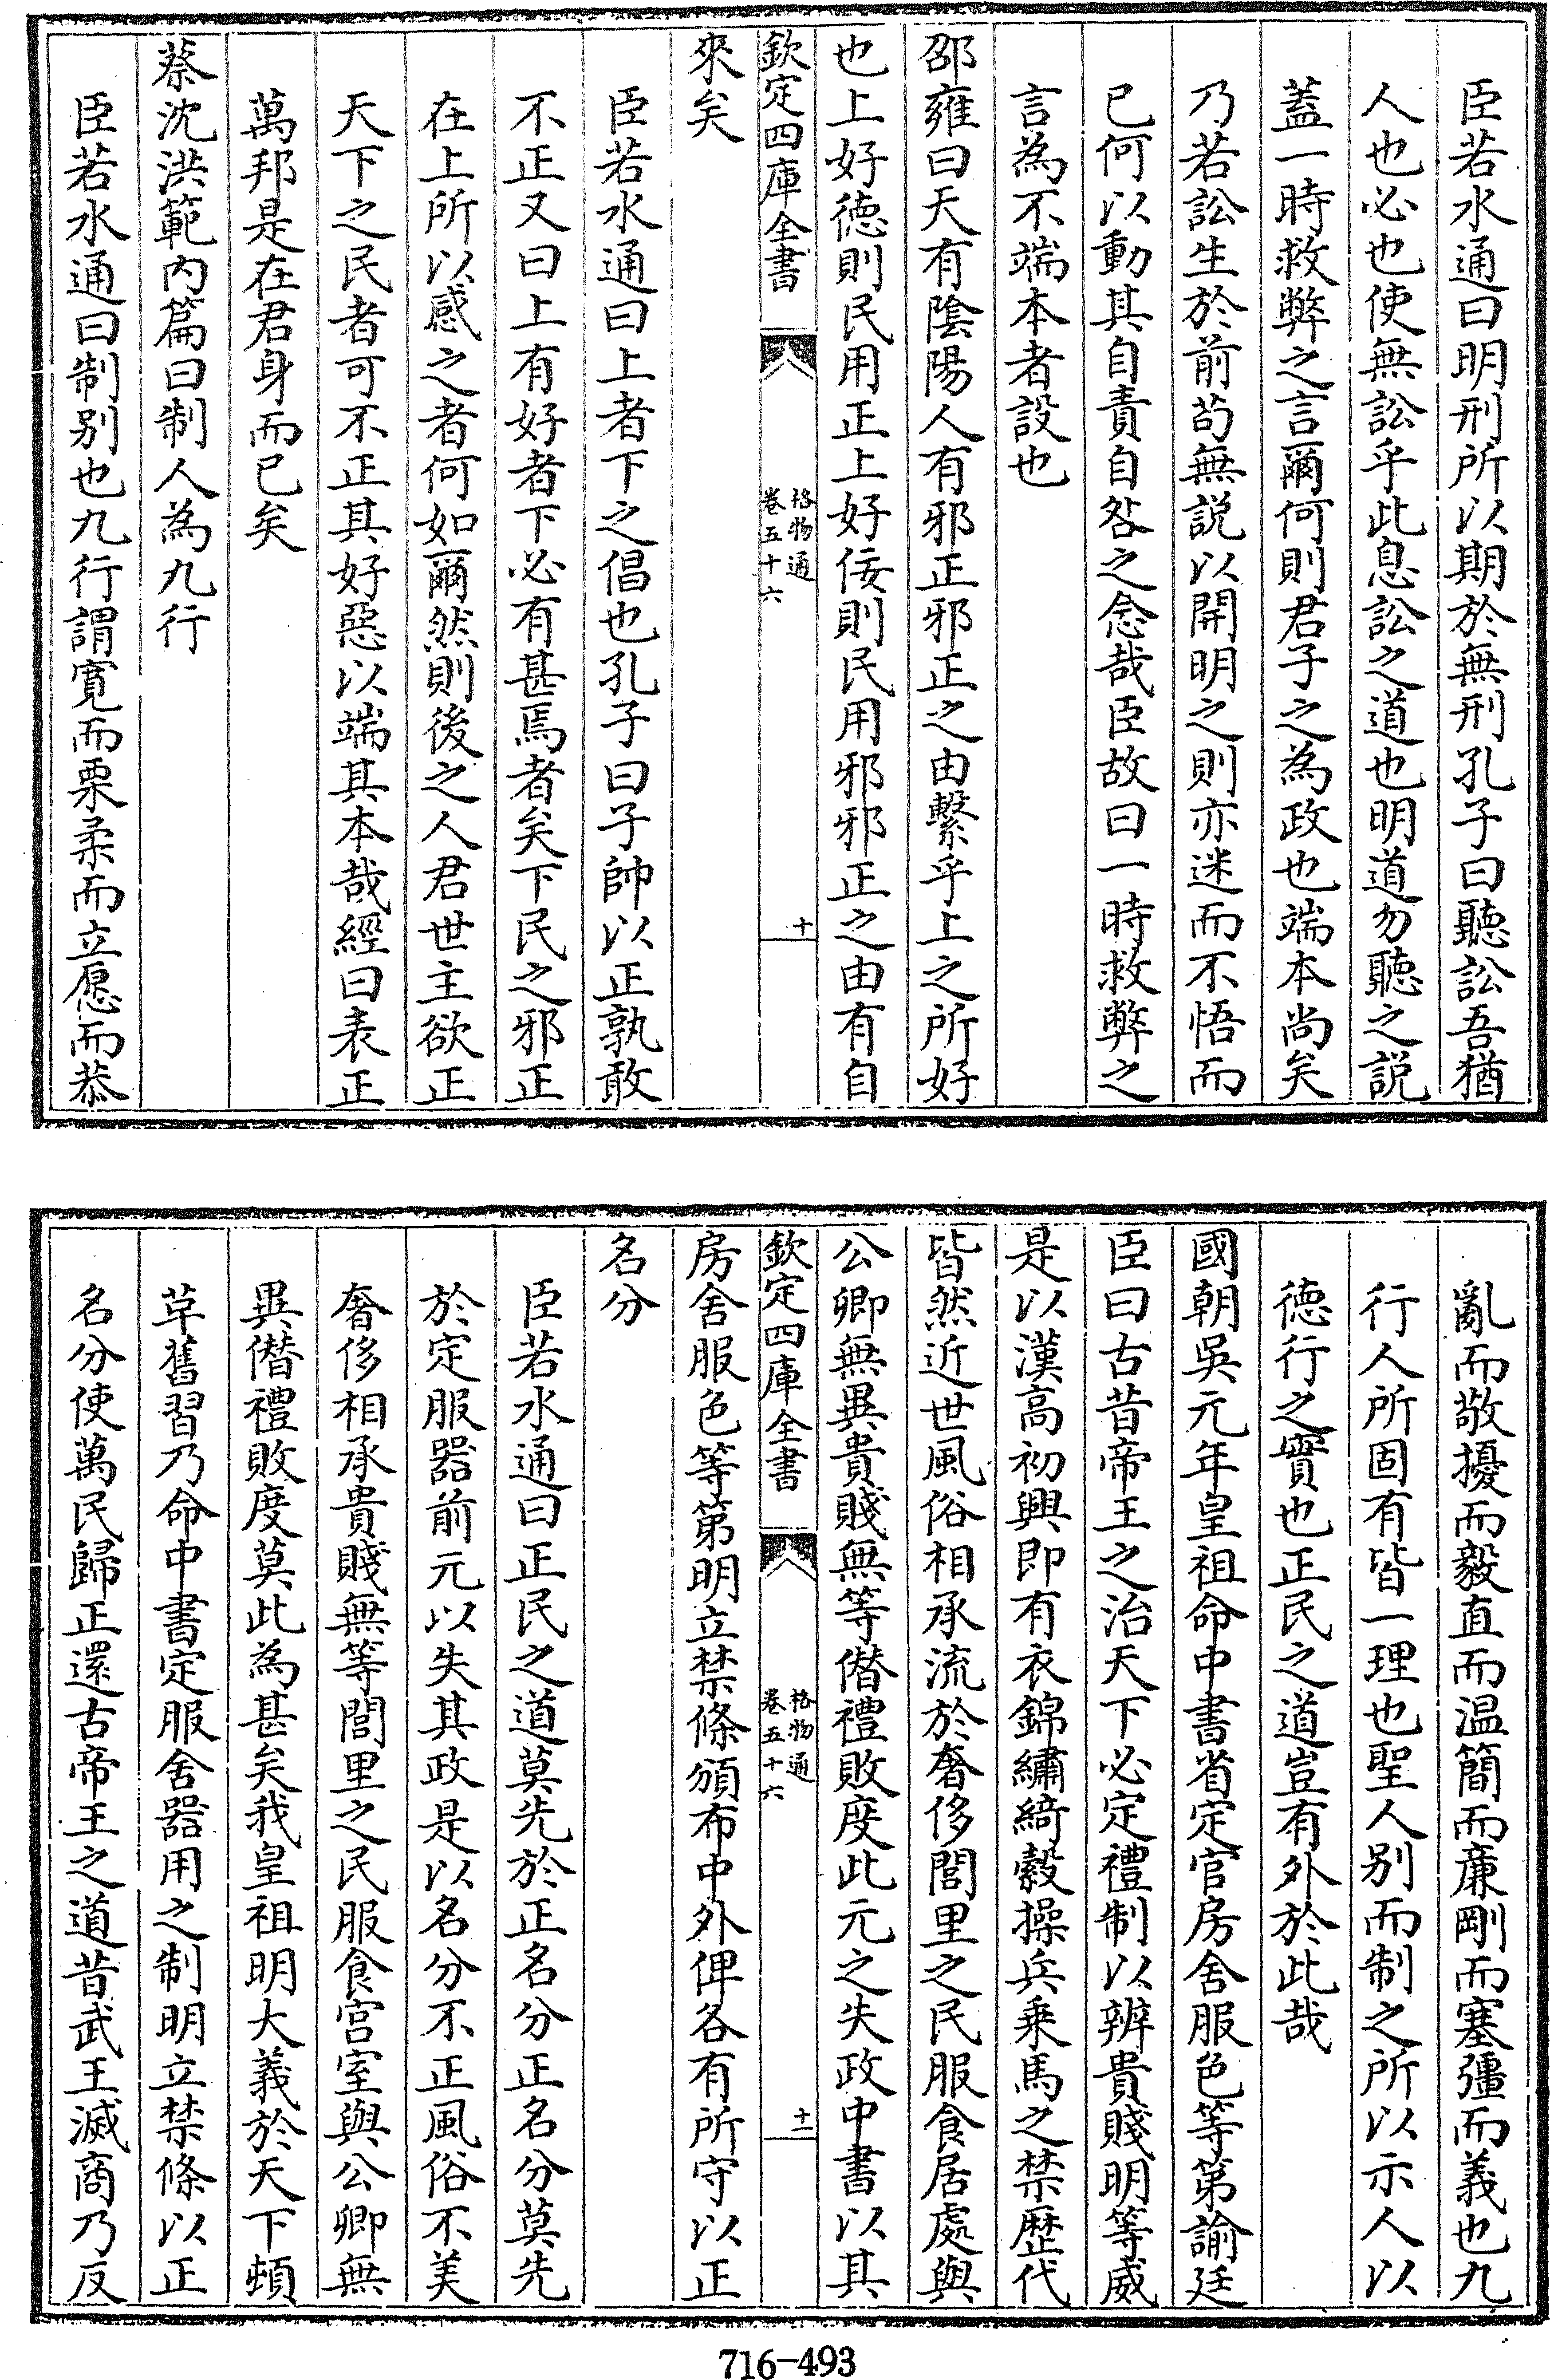 臣若水通曰明刑所以期於無刑孔子曰聽訟吾猶
人也必也使無訟乎此息訟之道也明道勿聽之說
蓋一時救弊之言爾何則君子之為政也端本尚矣
乃若訟生於前苟無説以開明之則亦迷而不悟而
已何以動其自責自咎之念哉臣故曰一時救弊之
言為不端本者設也
邵雍曰天有陰陽人有邪正邪正之由繫乎上之所好
也上好徳則民用正上好佞則民用邪邪正之由有自
欽定四庫全書
格物通
卷五十六
十
來矣
臣若水通曰上者下之倡也孔子曰子帥以正孰敢
不正又曰上有好者下必有甚焉者矣下民之邪正
在上所以感之者何如爾然則後之人君世主欲正
天下之民者可不正其好惡以端其本哉經曰表正
萬邦是在君身而已矣
蔡沈洪範内篇曰制人為九行
臣若水通曰制别也九行謂寛而栗柔而立愿而恭
亂而敬擾而毅直而温簡而亷剛而塞彊而義也九
行人所固有皆一理也聖人别而制之所以示人以
徳行之實也正民之道豈有外於此哉
國朝吳元年皇祖命中書省定官房舍服色等第諭廷
臣曰古昔帝王之治天下必定禮制以辨貴賤明等威
是以漢高初興即有衣錦繡綺縠操兵乗馬之禁歴代
皆然近世風俗相承流於奢侈閭里之民服食居處與
公卿無異貴賤無等僣禮敗度此元之失政中書以其
欽定四庫全書
格物通
卷五十六
十一
房舍服色等第明立禁條頒布中外俾各有所守以正
名分
臣若水通曰正民之道莫先於正名分正名分莫先
於定服器前元以失其政是以名分不正風俗不美
奢侈相承貴賤無等閭里之民服食宫室與公卿無
異僣禮敗度莫此為甚矣我皇祖明大義於天下頓
革舊習乃命中書定服舍器用之制明立禁條以正
名分使萬民歸正還古帝王之道昔武王滅商乃反
716-493